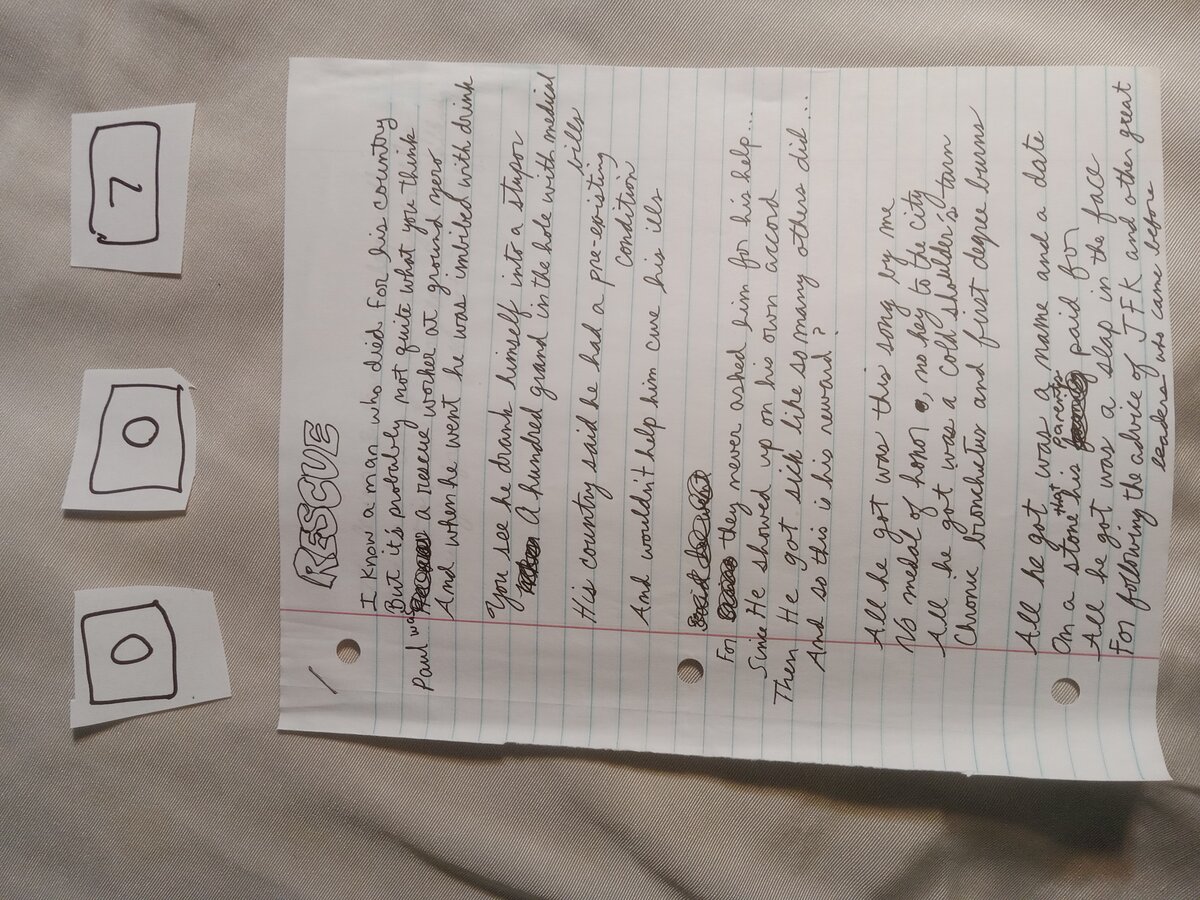 0 0 7
1
RESCUE
I Know a man who died for his country
But it's probaly not quite what you think
Paul was a rescue worker at ground zero
And when he went he was imbibed with drink
You see he drank himself into a stupor
A hundred grand in the hole with medical
bills
His country said he had a pre-existing
condition
And wouldn't help him cure his ills
For they never asked him for his help...
Since He showed up on his own accord
Then He got sick like so many others did...
And so this is his reward?
All he got was this song by me
No medal of honor, no key to the city
All he got was a cold shoulder's turn
Chronic bronchetus and first degree burns
All he got was a name and a date
On a stone that his parents paid for
All he got was a slap in the face
For following the advice of JFK and other great
leaders who came before